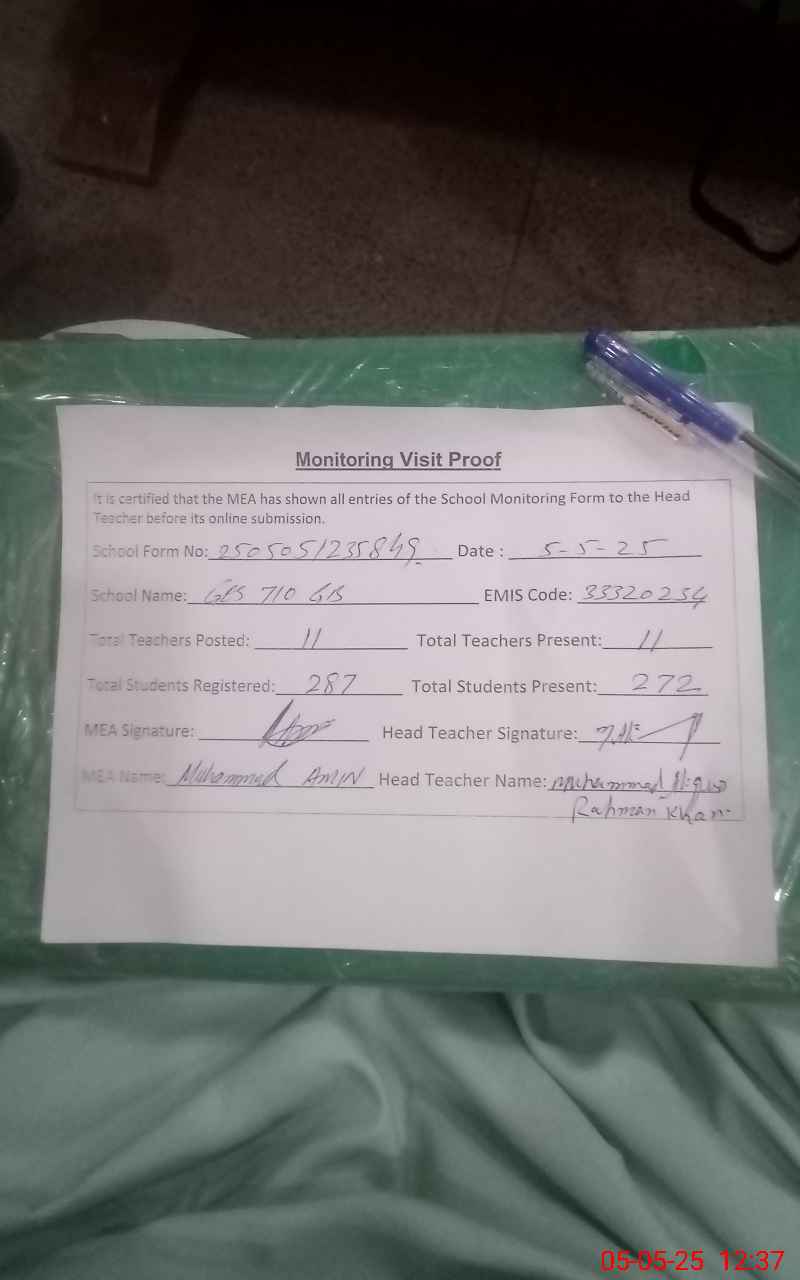 Monitoring Visit Proof
It is certified that the MEA has shown all entries of the School Monitoring Form to the Head
Teacher before its online submission.
School Form No: 2505051235849 Date : 5-5-25
School Name: GPS 710 GB EMIS Code: 33320254
Total Teachers Posted: 11 Total Teachers Present: 11
Total Students Registered: 287 Total Students Present: 272
MEA Signature: Head Teacher Signature:
MEA Name: Muhammad AMIN Head Teacher Name: Muhammad
Rahman Khan
05-05-25 12:37